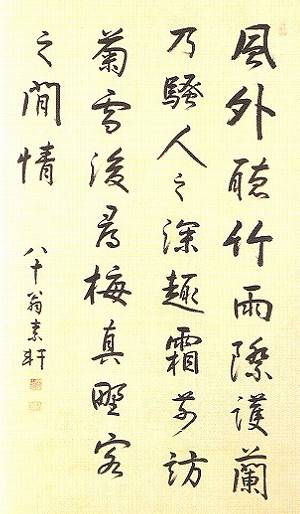 風外聴竹雨際護蘭
乃騷人之深趣霜前訪
菊雪後尋梅真野客
之閒情
八十翁素軒